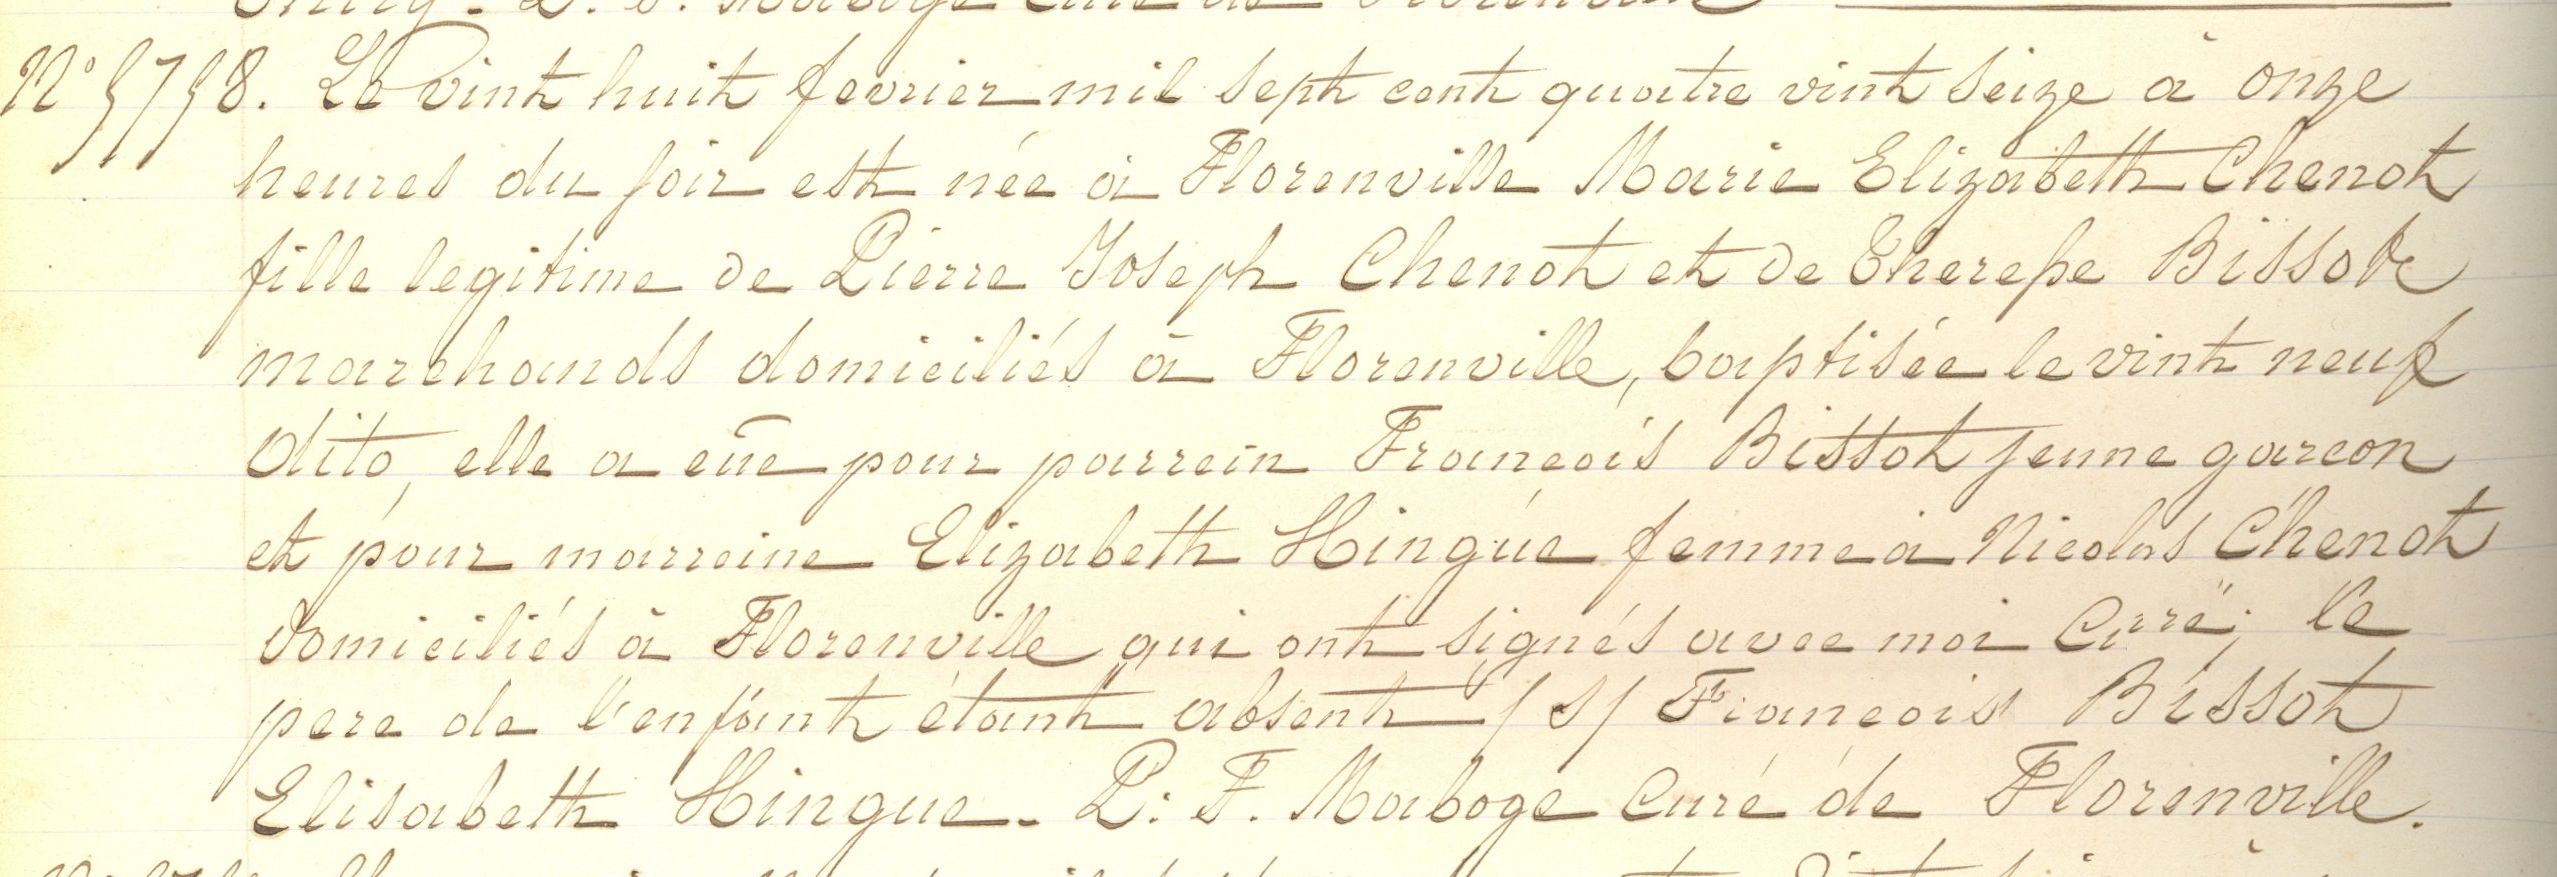 L. F. Maboge Curé de Florenville
Nº 5758. Le vint huit fevrier mil sept cent quatre vint seize à onze
heures du soir est née à Florenville Marie Elizabeth Chenot
fille legitime de Pierre Joseph Chenot et de Therese Bissot
marchands domiciliés à Florenville, baptisée le vint neuf
dito, elle a eüe pour parrein Francois Bissot jeune garcon
et pour marreine Elizabeth Hingue femme a Nicolas Chenot
domiciliés à Florenville qui ont signés avec moi Curré; le
pere de l'enfant étant absent /s/ Francois Bissot
Elisabeth Hingue. L: F. Maboge Curé de Florenville.